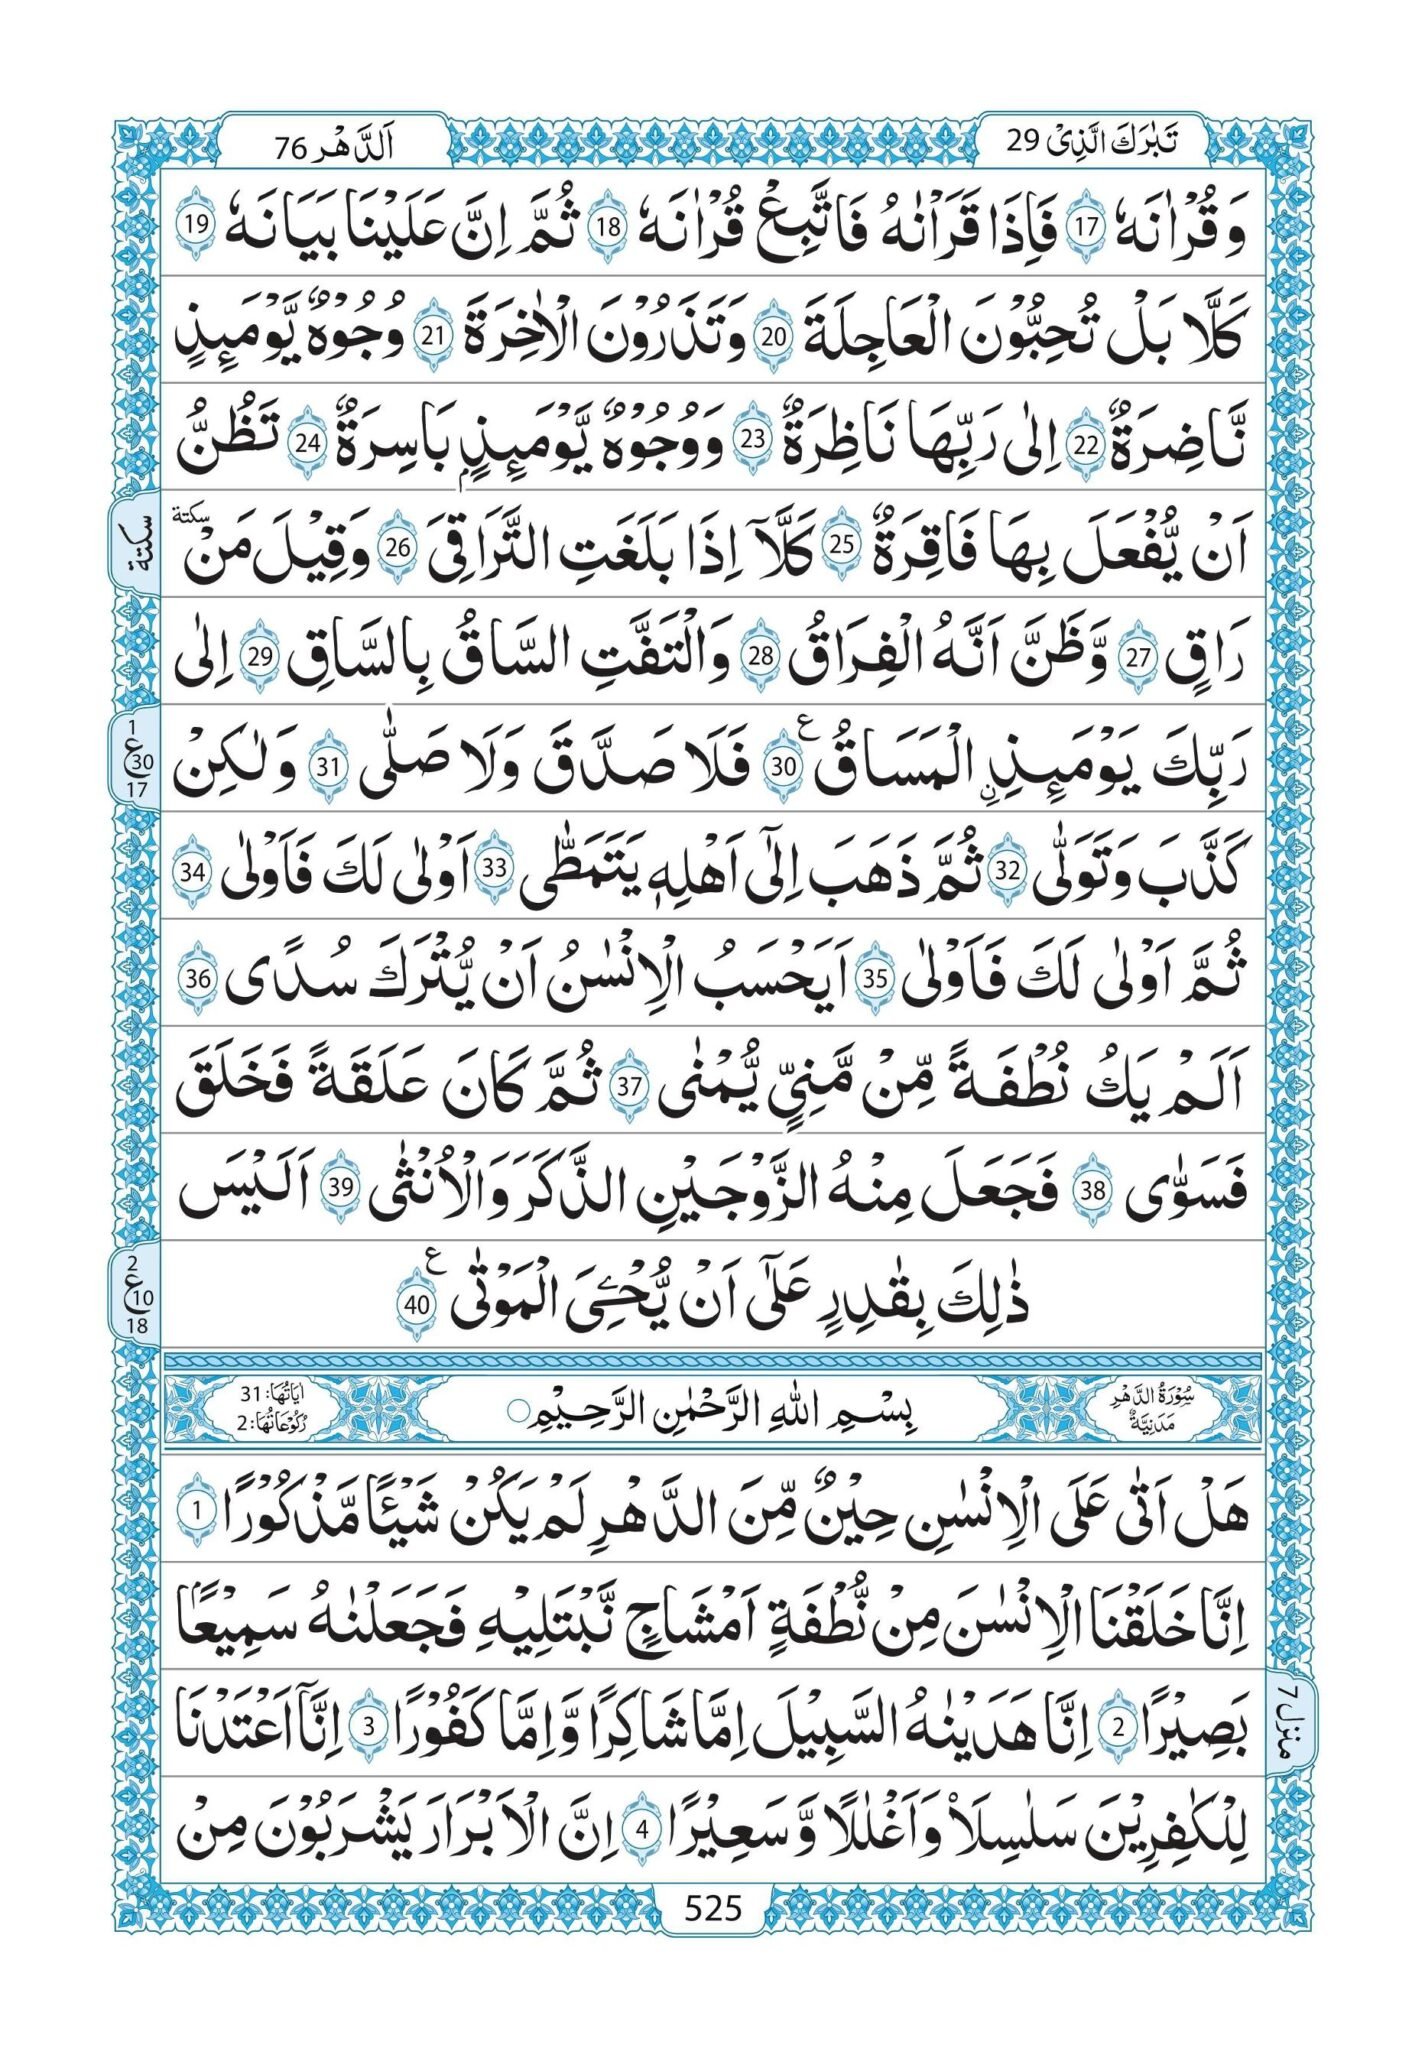 تَبٰرَكَ الَّذِىْ 29
اَلدَّهْر 76
وَ قُرْاٰنَهٗ 17 فَاِذَا قَرَاْنٰهُ فَاتَّبِعْ قُرْاٰنَهٗ 18 ثُمَّ اِنَّ عَلَيْنَا بَيَانَهٗ 19
كَلَّا بَلْ تُحِبُّوْنَ الْعَاجِلَةَ 20 وَتَذَرُوْنَ الْاٰخِرَةَ 21 وُجُوْهٌ يَّوْمَىِٕذٍ
نَّاضِرَةٌ 22 اِلٰى رَبِّهَا نَاظِرَةٌ 23 وَوُجُوْهٌ يَّوْمَىِٕذٍۭ بَاسِرَةٌ 24 تَظُنُّ
اَنْ يُّفْعَلَ بِهَا فَاقِرَةٌ 25 كَلَّآ اِذَا بَلَغَتِ التَّرَاقِىَ 26 وَقِيْلَ مَنْ سكتة
سكتة
رَاقٍ 27 وَّظَنَّ اَنَّهُ الْفِرَاقُ 28 وَالْتَفَّتِ السَّاقُ بِالسَّاقِ 29 اِلٰى
رَبِّكَ يَوْمَىِٕذِ ۨالْمَسَاقُ ع 30 فَلَا صَدَّقَ وَلَا صَلّٰى 31 وَلٰكِنْ
1 ع 30 17
كَذَّبَ وَتَوَلّٰى 32 ثُمَّ ذَهَبَ اِلٰٓى اَهْلِهٖ يَتَمَطّٰى 33 اَوْلٰى لَكَ فَاَوْلٰى 34
ثُمَّ اَوْلٰى لَكَ فَاَوْلٰى 35 اَيَحْسَبُ الْاِنْسٰنُ اَنْ يُّتْرَكَ سُدًى 36
اَلَمْ يَكُ نُطْفَةً مِّنْ مَّنِىٍّ يُّمْنٰى 37 ثُمَّ كَانَ عَلَقَةً فَخَلَقَ
فَسَوّٰى 38 فَجَعَلَ مِنْهُ الزَّوْجَيْنِ الذَّكَرَ وَالْاُنْثٰى 39 اَلَيْسَ
ذٰلِكَ بِقٰدِرٍ عَلٰٓى اَنْ يُّحْـِۧىَ الْمَوْتٰى ع 40
2 ع 10 18
سُوْرَةُ الدَّهْرِ مَدَنِيَّةٌ
بِسْمِ اللهِ الرَّحْمٰنِ الرَّحِيْمِ
اٰيَاتُهَا: 31
رُكُوْعَاتُهَا: 2
هَلْ اَتٰى عَلَى الْاِنْسٰنِ حِيْنٌ مِّنَ الدَّهْرِ لَمْ يَكُنْ شَيْـًٔا مَّذْكُوْرًا 1
اِنَّا خَلَقْنَا الْاِنْسٰنَ مِنْ نُّطْفَةٍ اَمْشَاجٍ نَّبْتَلِيْهِ فَجَعَلْنٰهُ سَمِيْعًاۢ
بَصِيْرًا 2 اِنَّا هَدَيْنٰهُ السَّبِيْلَ اِمَّا شَاكِرًا وَّاِمَّا كَفُوْرًا 3 اِنَّآ اَعْتَدْنَا
منزل 7
لِلْكٰفِرِيْنَ سَلٰسِلَا۟ وَاَغْلٰلًا وَّسَعِيْرًا 4 اِنَّ الْاَبْرَارَ يَشْرَبُوْنَ مِنْ
525